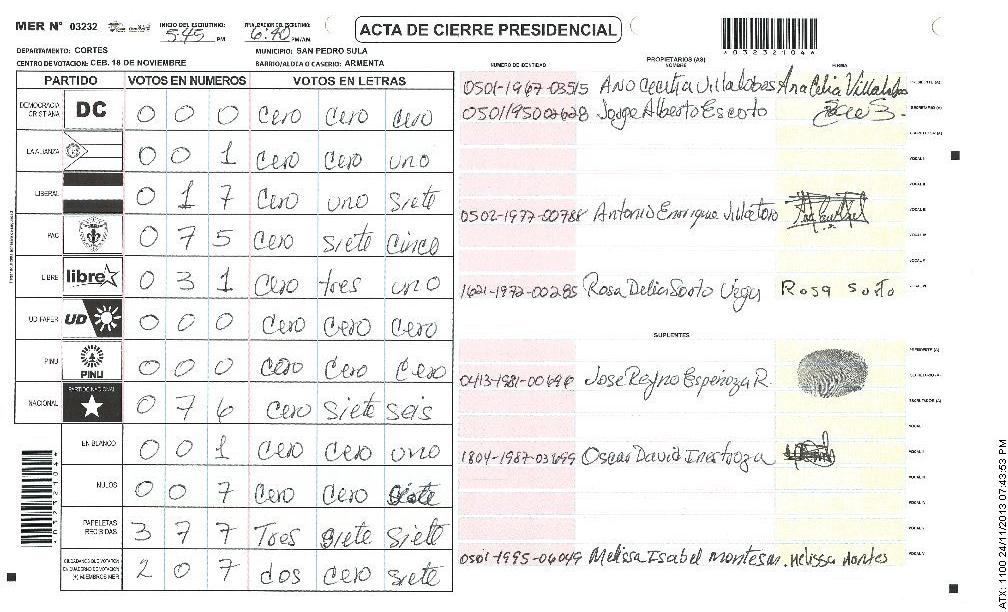 MER N° 03232
INICIO DEL ESCRUTINIO: 5:45 PM
FINALIZACION DEL ESCRUTINIO: 6:40 PM/AM
ACTA DE CIERRE PRESIDENCIAL
*03232104*
DEPARTAMENTO: CORTES
MUNICIPIO: SAN PEDRO SULA
CENTRO DE VOTACION: CEB. 18 DE NOVIEMBRE
BARRIO/ALDEA O CASERIO: ARMENTA
PARTIDO VOTOS EN NUMEROS VOTOS EN LETRAS
DEMOCRACIA CRISTIANA DC 0 0 0 Cero Cero Cero
LA ALIANZA 0 0 1 Cero Cero uno
LIBERAL 0 1 7 Cero uno Siete
PAC 0 7 5 Cero Siete Cinco
LIBRE libre 0 3 1 Cero tres uno
UD FAPER UD 0 0 0 Cero Cero Cero
PINU PINU 0 0 0 Cero Cero Cero
NACIONAL PARTIDO NACIONAL 0 7 6 Cero Siete Seis
EN BLANCO 0 0 1 Cero Cero uno
NULOS 0 0 7 Cero Cero Siete
PAPELETAS RECIBIDAS 3 7 7 Tres Siete Siete
CIUDADANOS QUE VOTARON EN CUADERNO DE VOTACION (+) MIEMBROS MER 2 0 7 dos Cero Siete
NUMERO DE IDENTIDAD
PROPIETARIOS (AS)
NOMBRE
FIRMA
0501-1967-03515 Ana Cecilia Villalobos Ana Celia Villalobos PRESIDENTE (A)
0501195002628 Jorge Alberto Escoto SECRETARIO (A)
ESCRUTADOR (A)
VOCAL I
VOCAL II
0502-1977-00788 Antonio Enrique Villatoro VOCAL III
VOCAL IV
VOCAL V
1621-1972-00285 Rosa Delia Sorto Vega Rosa Sorto
SUPLENTES
PRESIDENTE (A)
0413-1981-00696 Jose Reyno Espinoza R. SECRETARIO (A)
ESCRUTADOR (A)
VOCAL I
1804-1987-03699 Oscar David Inestroza VOCAL II
VOCAL III
VOCAL IV
VOCAL V
0501-1995-06049 Melissa Isabel Montes M. Melissa Montes
*03232104*
ATX: 1100 24/11/2013 07:43:53 PM